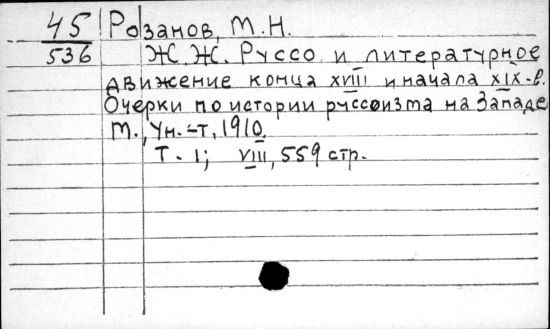 45 Розанов, М.Н.
536 Ж.Ж. Руссо и литературное
движение конца XVIII и начала XIX-в.
Очерки по истории руссоизма на Западе
М., Ун.-т, 1910.
Т. 1; VIII, 559 стр.